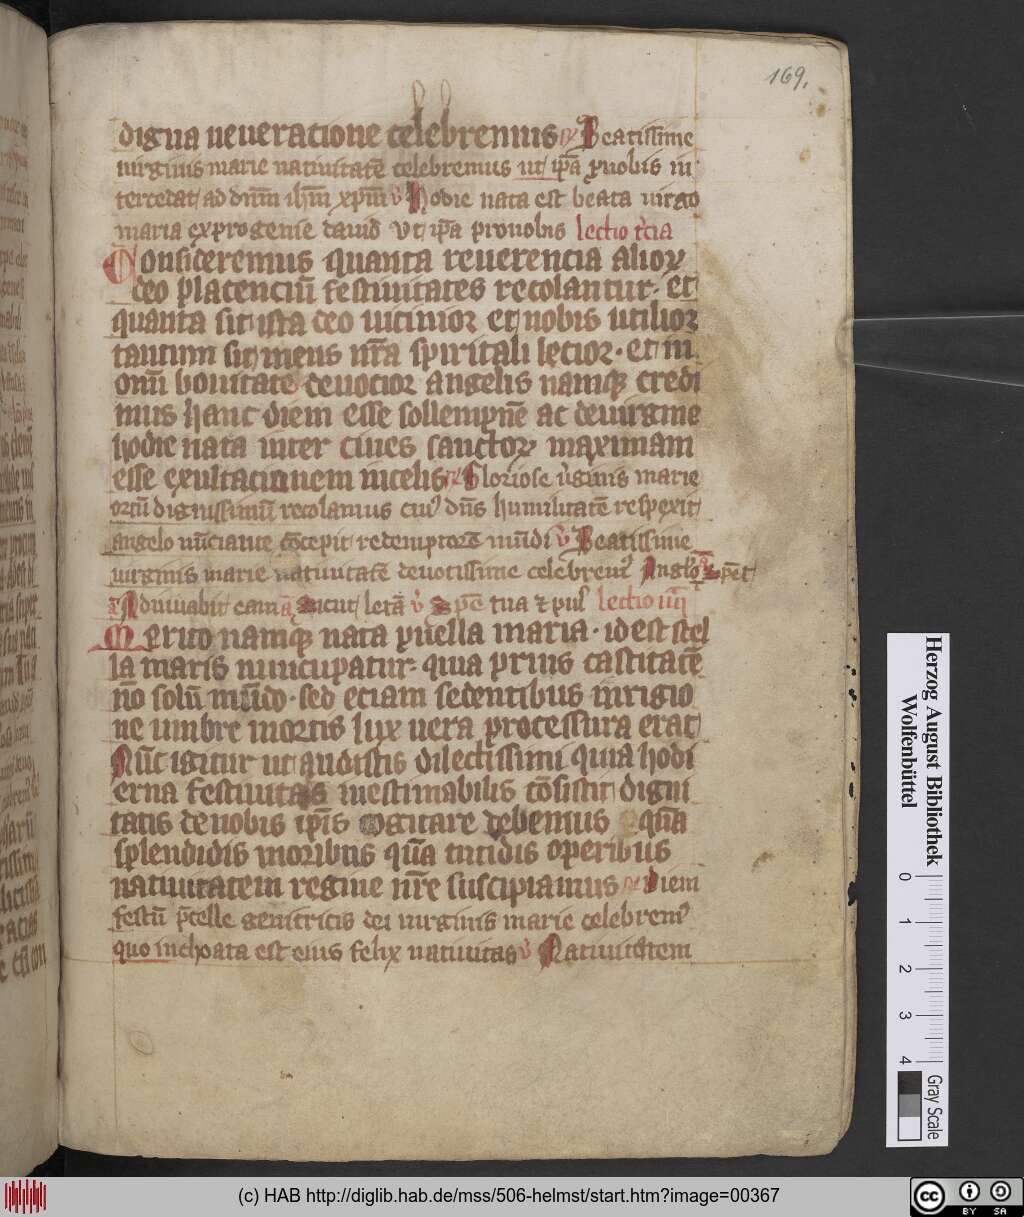 169.
digna ueneratione celebremus ℟ Beatissime
uirginis marie natiuitatē celebremus ut ip̄a ꝓ nobis in
tercedat ad dn̄m ih̄m xp̄m v̓ Hodie nata est beata uirgo
maria ex progenie dauid Vt ip̄a pro nobis lectio t͛cia
Consideremus quanta reuerencia alioꝝ
deo placenciū festiuitates recolantur. et
quanta sit ista deo uicinior et nobis utilior
tantum sit mens nr̄a spiritali lectior. et in
omī bonitate deuocior angelis namqꝫ credi
mus hanc diem esse sollempnē ac de uirgine
hodie nata inter ciues sanctoꝝ maximam
esse exultacionem in celis ℟ Gloriose ūginis marie
ortū dignissimū recolamus cuiꝰ dn̄s humilitatē respexit
angelo nūciante cōcepit redemptorē mūdi v̓ Beatissime
uirginis marie natiuitatē deuotissime celebremꝰ
Adiuuabit eam Sicut letā v̓ Spē tua ⁊ pul͛ lectio iiij
Merito namqꝫ nata puella maria. id est stel
la maris nuncupatur. quia prius castitatē
nō solū mūdo. sed eciam sedentibus in rigio
ne umbre mortis lux uera processura erat
Nūc igitur ut audistis dilectissimi quia hodi
erna festiuitas inestimabilis cōsistit digni
tatis de nobis ip̄is cogitare debemus quā
splendidis moribus quā nitidis operibus
natiuitatem regine nr̄e suscipiamus ℟ Diem
festū p̄celle genitricis dei uirginis marie celebremꝰ
quo inchoata est eius felix natiuitas v̓ Natiuitatem
Herzog August Bibliothek
Wolfenbüttel
0 1 2 3 4
Gray Scale
(c) HAB http://diglib.hab.de/mss/506-helmst/start.htm?image=00367
cc BY SA